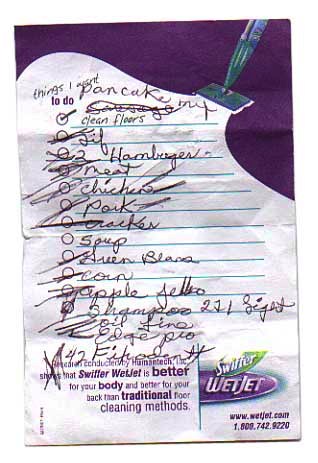 things I want
to do Pancake mix
Sausage
clean floors
Jif
2 Hamburger
meat
chicken
Pork
cracker
Soup
Green Beans
corn
apple Jello
Shampoo 2 + 1
Edge pro
Research conducted by Humantech, Inc.
shows that Swiffer WetJet is better
for your body and better for your
back than traditional floor
cleaning methods.
Swiffer
WETJET
www.wetjet.com
1.800.742.9220